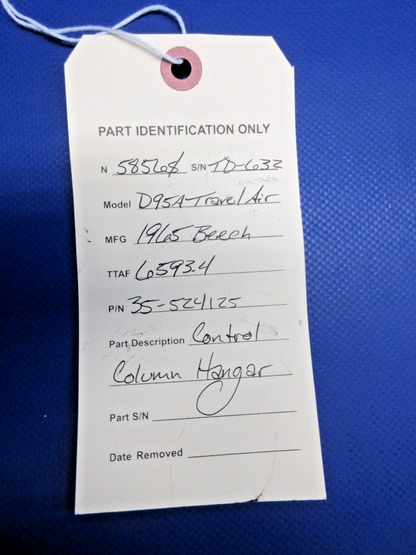 PART IDENTIFICATION ONLY
N 5856Y S/N TD-632
Model D95A Travel Air
MFG 1965 Beech
TTAF 6593.4
P/N 35-524125
Part Description Control
Column Hangar
Part S/N
Date Removed